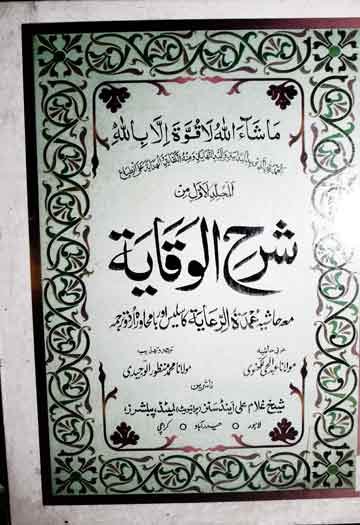 ماشاء الله لا قوة إلا بالله
المجلد الاول من
شرح الوقاية
مع حاشیہ عمدة الرعاية کا سلیس اور بامحاورہ اردو ترجمہ
عربی حاشیہ
مولانا عبدالحی لکھنوی
ترجمہ و تہذیب
مولانا محمد منظور الوجیدی
ناشرین
شیخ غلام علی اینڈ سنز (پرائیویٹ) لمیٹڈ پبلشرز
لاہور ○ حیدرآباد ○ کراچی